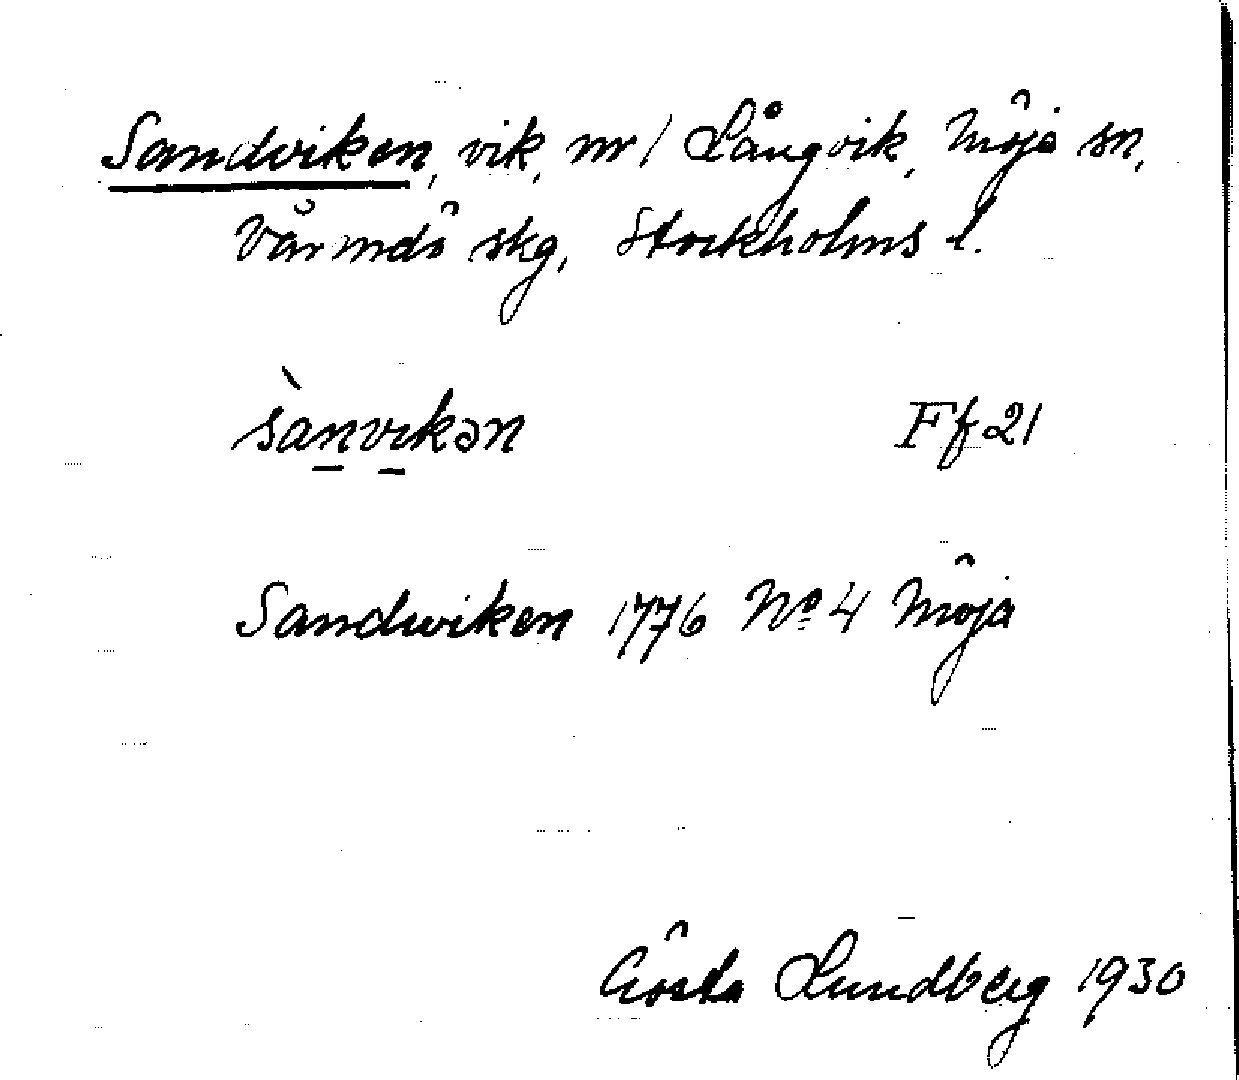 Sandviken, vik, nr 1 Långvik, Möja sn,
Värmdö skg, Stockholms l.
sànvikən Ff 21
Sandwiken 1776 No 4 Möja
Gösta Lundberg 1930